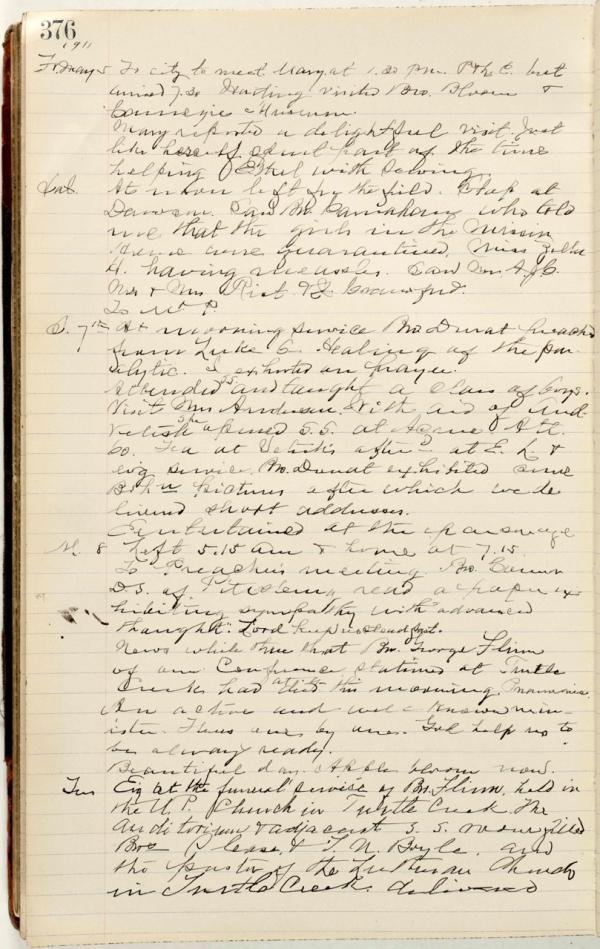 376
1911
Fr. May 5 To city to meet Mary at 1.20 pm. P & L. E. but
arrived 7.20. Waiting visited Bro. Bloom &
Carnegie Museum.
Mary reported a delightful visit. Just
like herself spent part of the time
helping Ethel with sewing.
Sat. At noon left for the field. Stop at
Dawson. Saw Mr. who told
me that the girls in the Mission
Home were quarantined, Miss
H. having measles. Saw
Mr & Mrs Rist & Crawford.
To Mt P.
S. 7th At morning service Bro Durat preached
from Luke 6. Healing of the par-
alytic. I exhorted on prayer.
Attended S.S. and taught a class of boys.
Visit Mrs Anderson. With aid of And.
she opened S.S. at Acme
Co. Tea at after at E. L. &
evg service. Bro. Durat exhibited some
Bohn pictures after which we de
livered short addresses.
Entertained at the parsonage
M. 8 Left 5.15 am & home at 7.15.
To Preachers meeting. Bro.
D.S. of read a paper ex-
hibiting sympathy with "advanced
thought". Lord keep us steadfast.
News while there that Bro. George Flinn
of our Conference stationed at Turtle
Creek had died this morning. Pneumonia.
An active and well known min-
ister. Thus one by one. God help us to
be always ready.
Beautiful day. Apple bloom now.
Tues Evg at the funeral service of Bro. Flinn, held in
the U. P. Church in Turtle Creek. The
auditorium & adjacent S. S. room filled
Bros Pease, & T. N. Boyle, and
the pastor of the Lutheran Church
in Turtle Creek. delivered